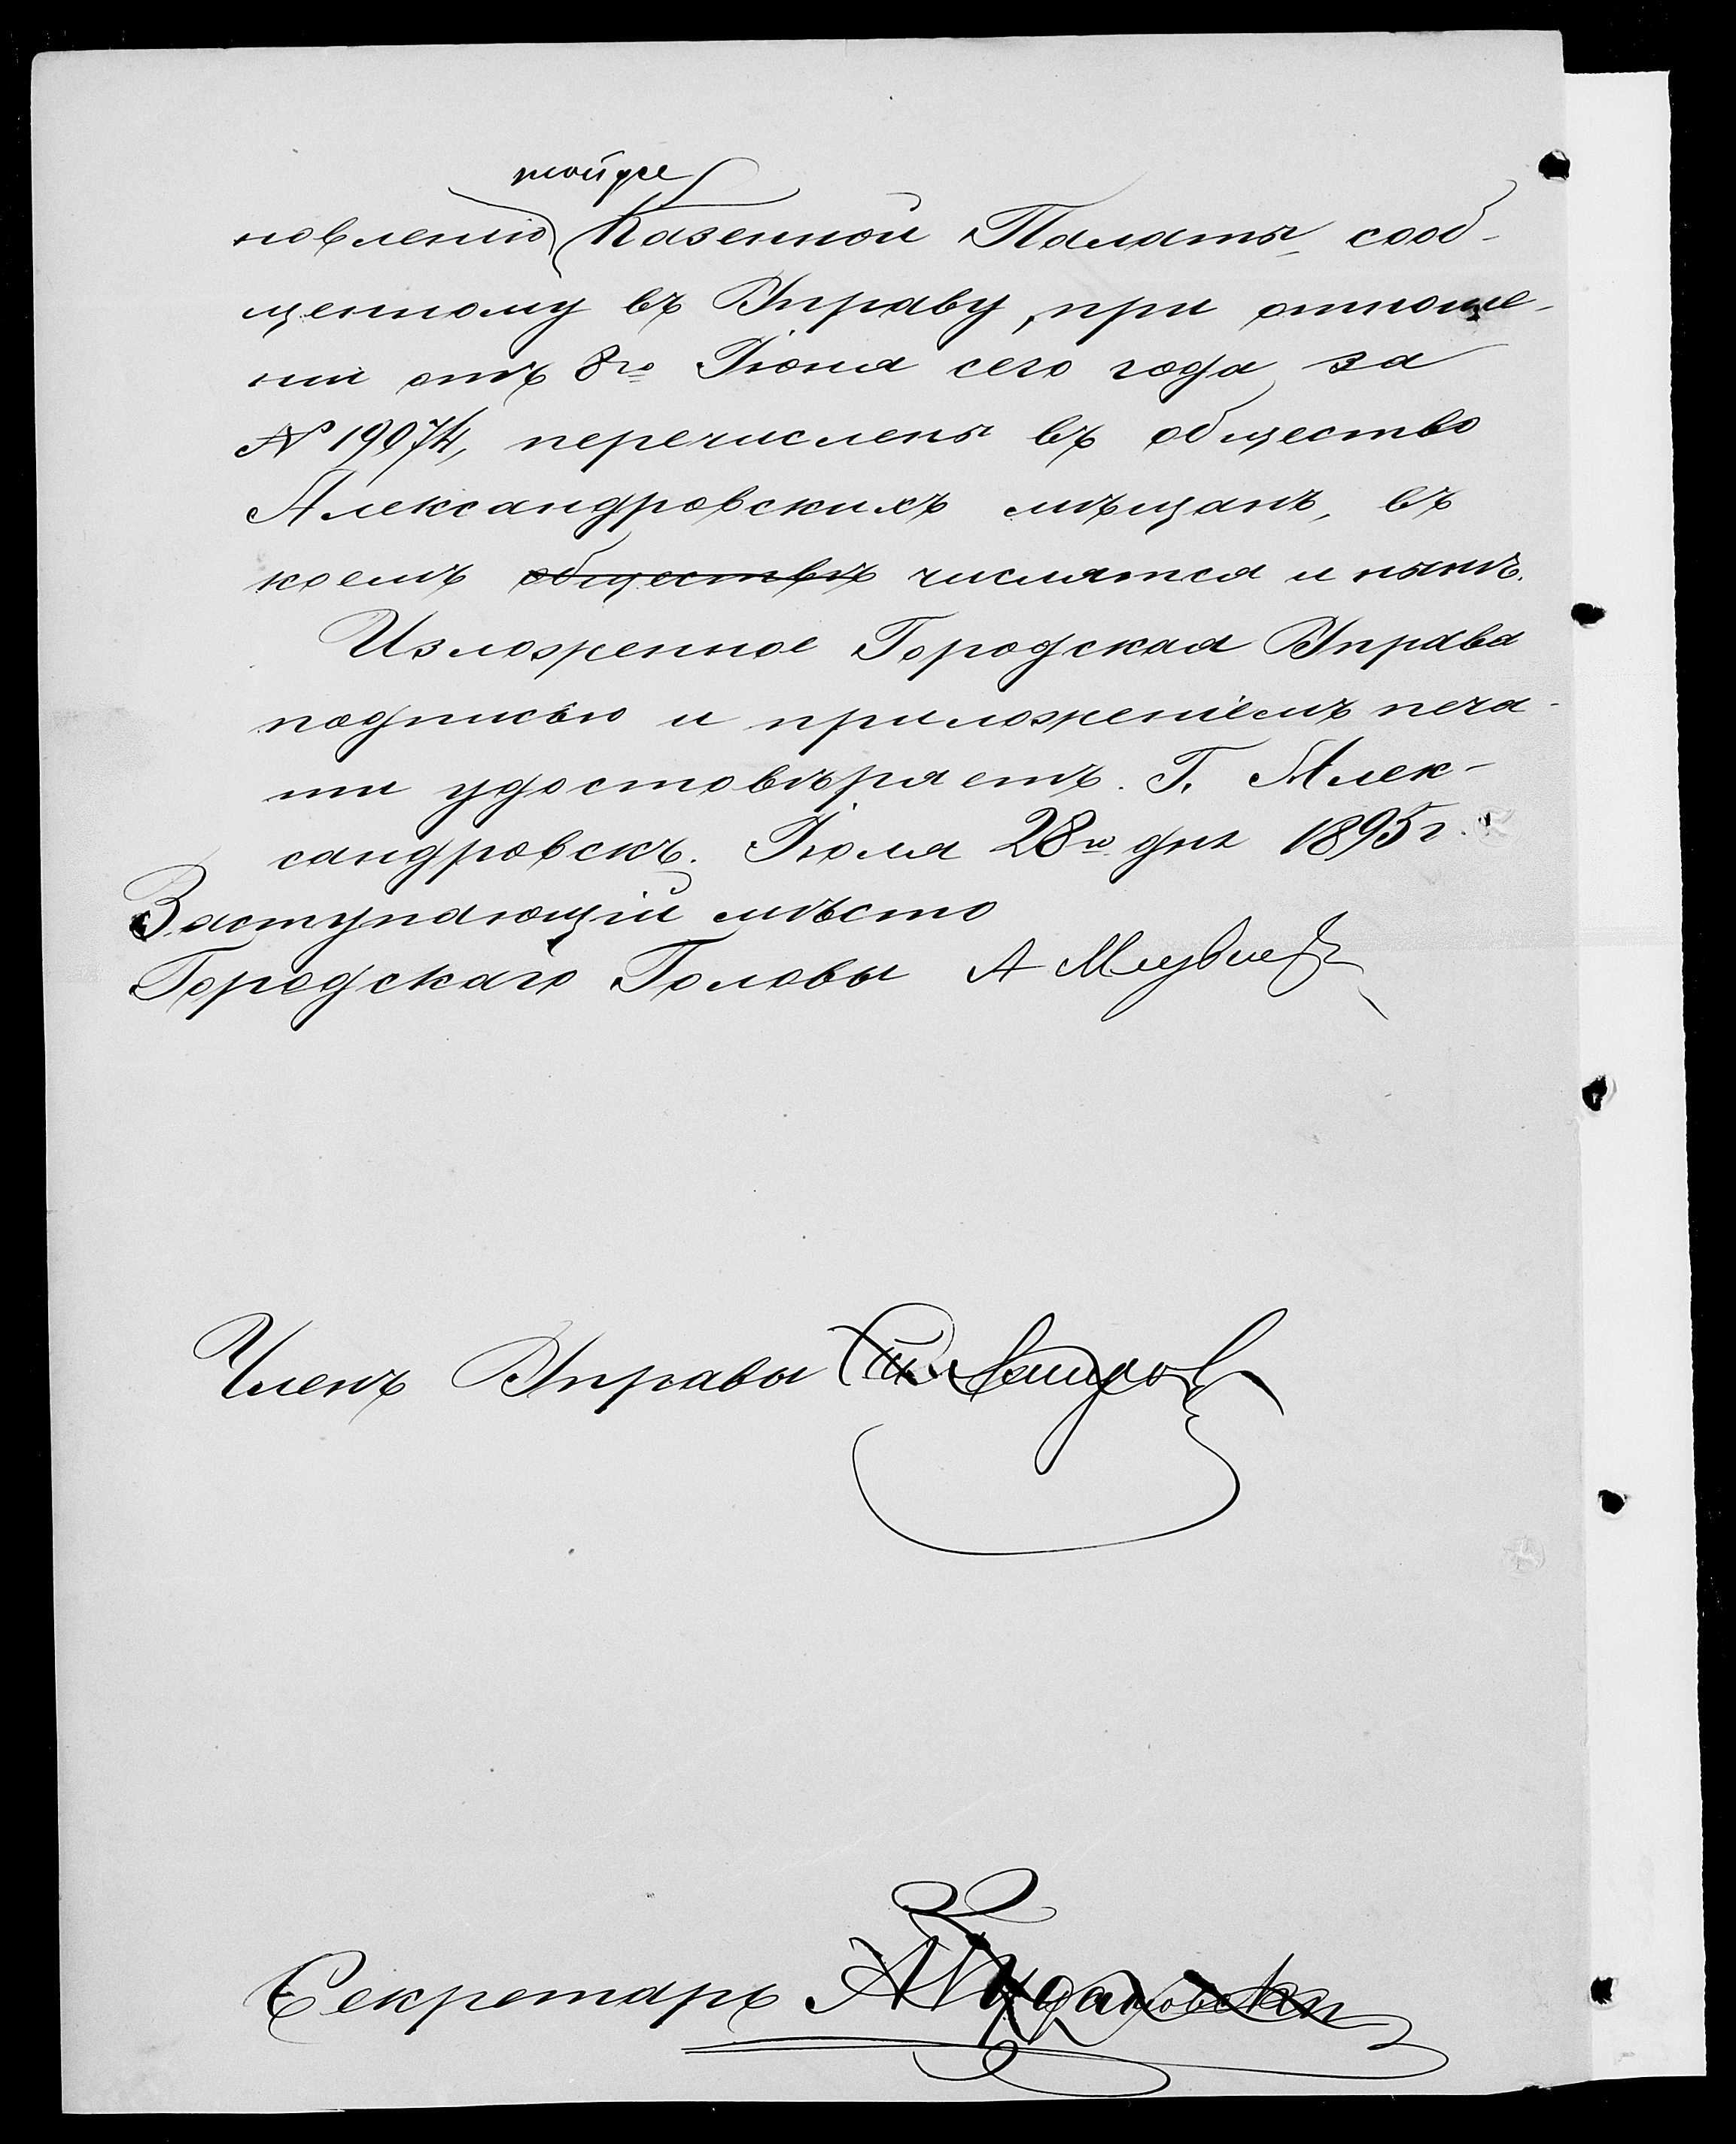 тойже
новленію Казенной Палаты, сооб-
щенному въ Управу, при отноше-
ніи отъ 8го Іюня сего года за
№ 19074, перечислены въ общество
Александровскихъ мѣщанъ, въ
коемъ обществѣ числятся и нынѣ.
Изложенное Городская Управа
подписью и приложеніемъ печа-
ти удостовѣряетъ. Г. Алек-
сандровскъ. Іюля 28го дня 1895 г.
Заступающій мѣсто
Городскаго Головы А Медвѣдевъ
Членъ Управы
Секретарь